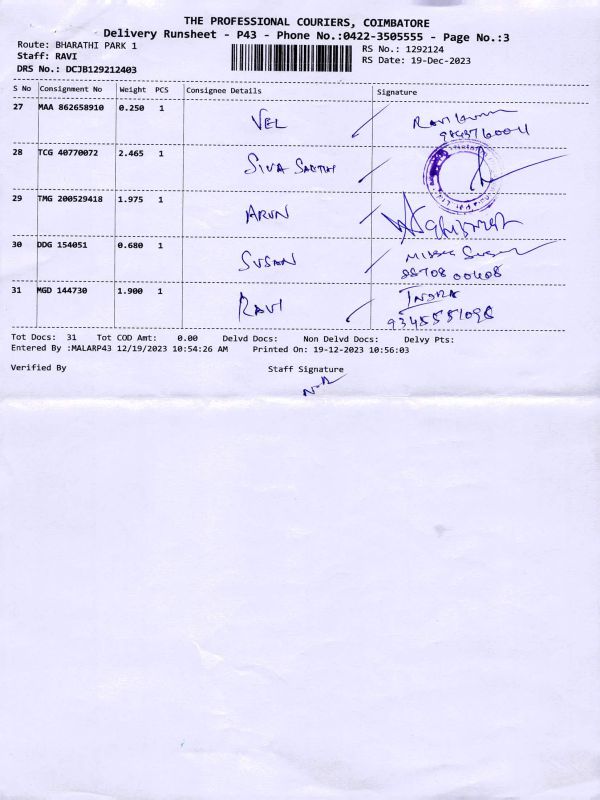 THE PROFESSIONAL COURIERS, COIMBATORE
Delivery Runsheet - P43 - Phone No.:0422-3505555 - Page No.:3
Route: BHARATHI PARK 1 RS No.: 1292124
Staff: RAVI RS Date: 19-Dec-2023
DRS No.: DCJB129212403
S No Consignment No Weight PCS Consignee Details Signature
27 MAA 862658910 0.250 1 VEL
28 TCG 40770072 2.465 1 SIVA
29 TMG 200529418 1.975 1 ARUN
30 DDG 154051 0.680 1 SUSAN
31 MGD 144730 1.900 1 RAVI INDRA
Tot Docs: 31 Tot COD Amt: 0.00 Delvd Docs: Non Delvd Docs: Delvy Pts:
Entered By :MALARP43 12/19/2023 10:54:26 AM Printed On: 19-12-2023 10:56:03
Verified By Staff Signature